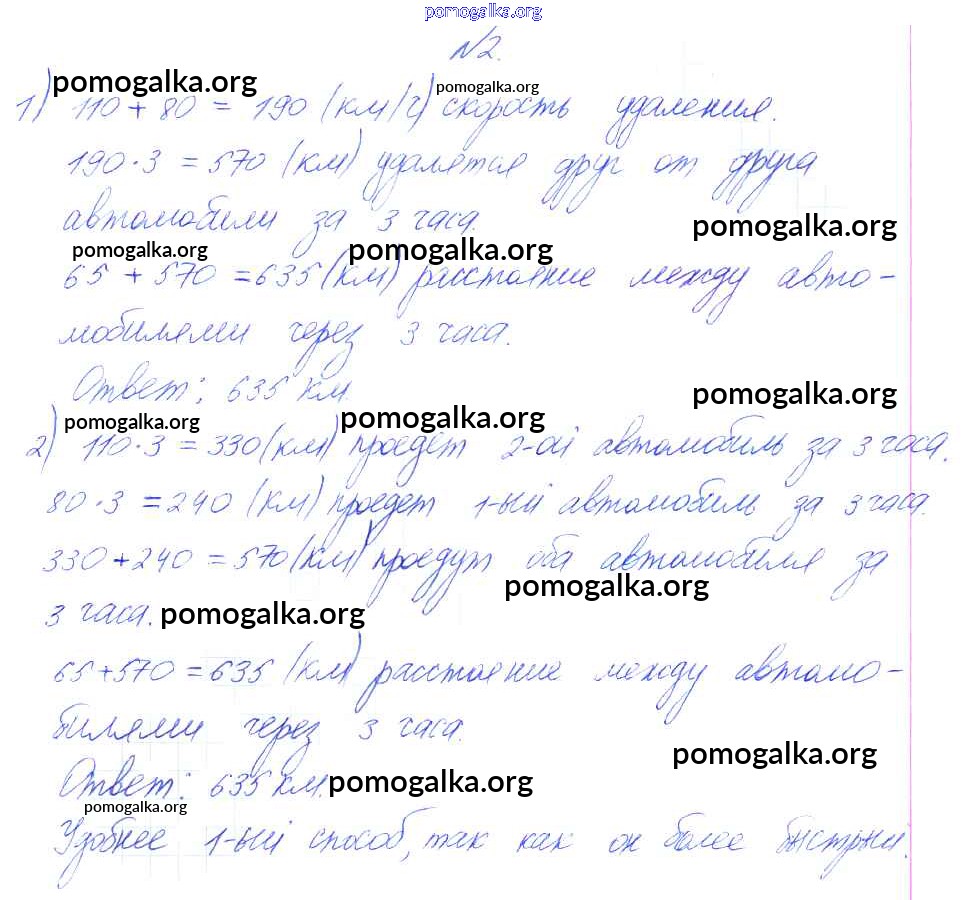 pomogalka.org
№2.
pomogalka.org pomogalka.org
1) 110 + 80 = 190 (км/ч) скорость удаления.
190 · 3 = 570 (км) удалятся друг от друга
автомобили за 3 часа.
pomogalka.org
pomogalka.org pomogalka.org
65 + 570 = 635 (км) расстояние между авто-
мобилями через 3 часа.
Ответ: 635 км.
pomogalka.org
pomogalka.org pomogalka.org
2) 110 · 3 = 330 (км) проедет 2-ой автомобиль за 3 часа.
80 · 3 = 240 (км) проедет 1-ый автомобиль за 3 часа.
330 + 240 = 570 (км) проедут оба автомобиля за
pomogalka.org
3 часа. pomogalka.org
65 + 570 = 635 (км) расстояние между автомо-
билями через 3 часа.
pomogalka.org
Ответ: 635 км. pomogalka.org
pomogalka.org
Удобнее 1-ый способ, так как он более быстрый.